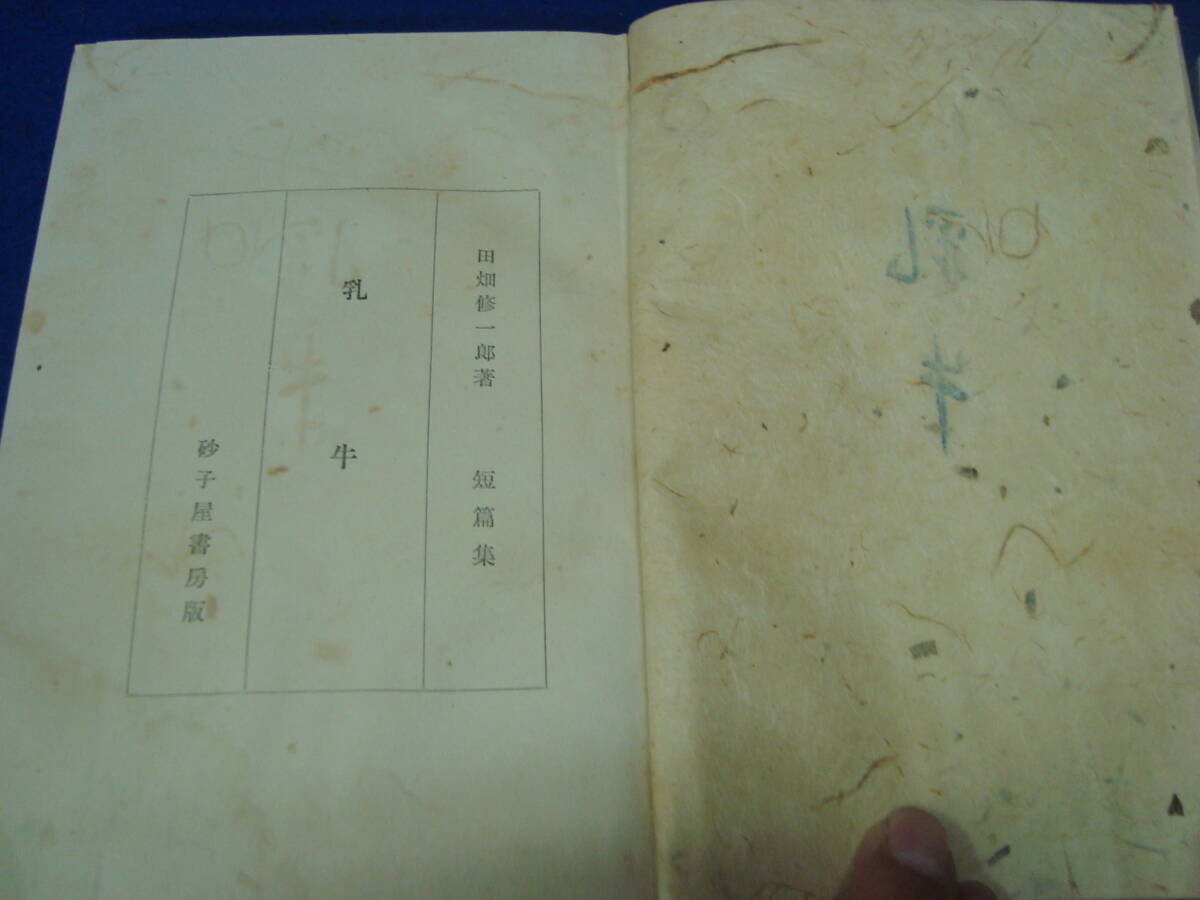 田畑修一郎著　短篇集
乳牛
砂子屋書房版
乳牛